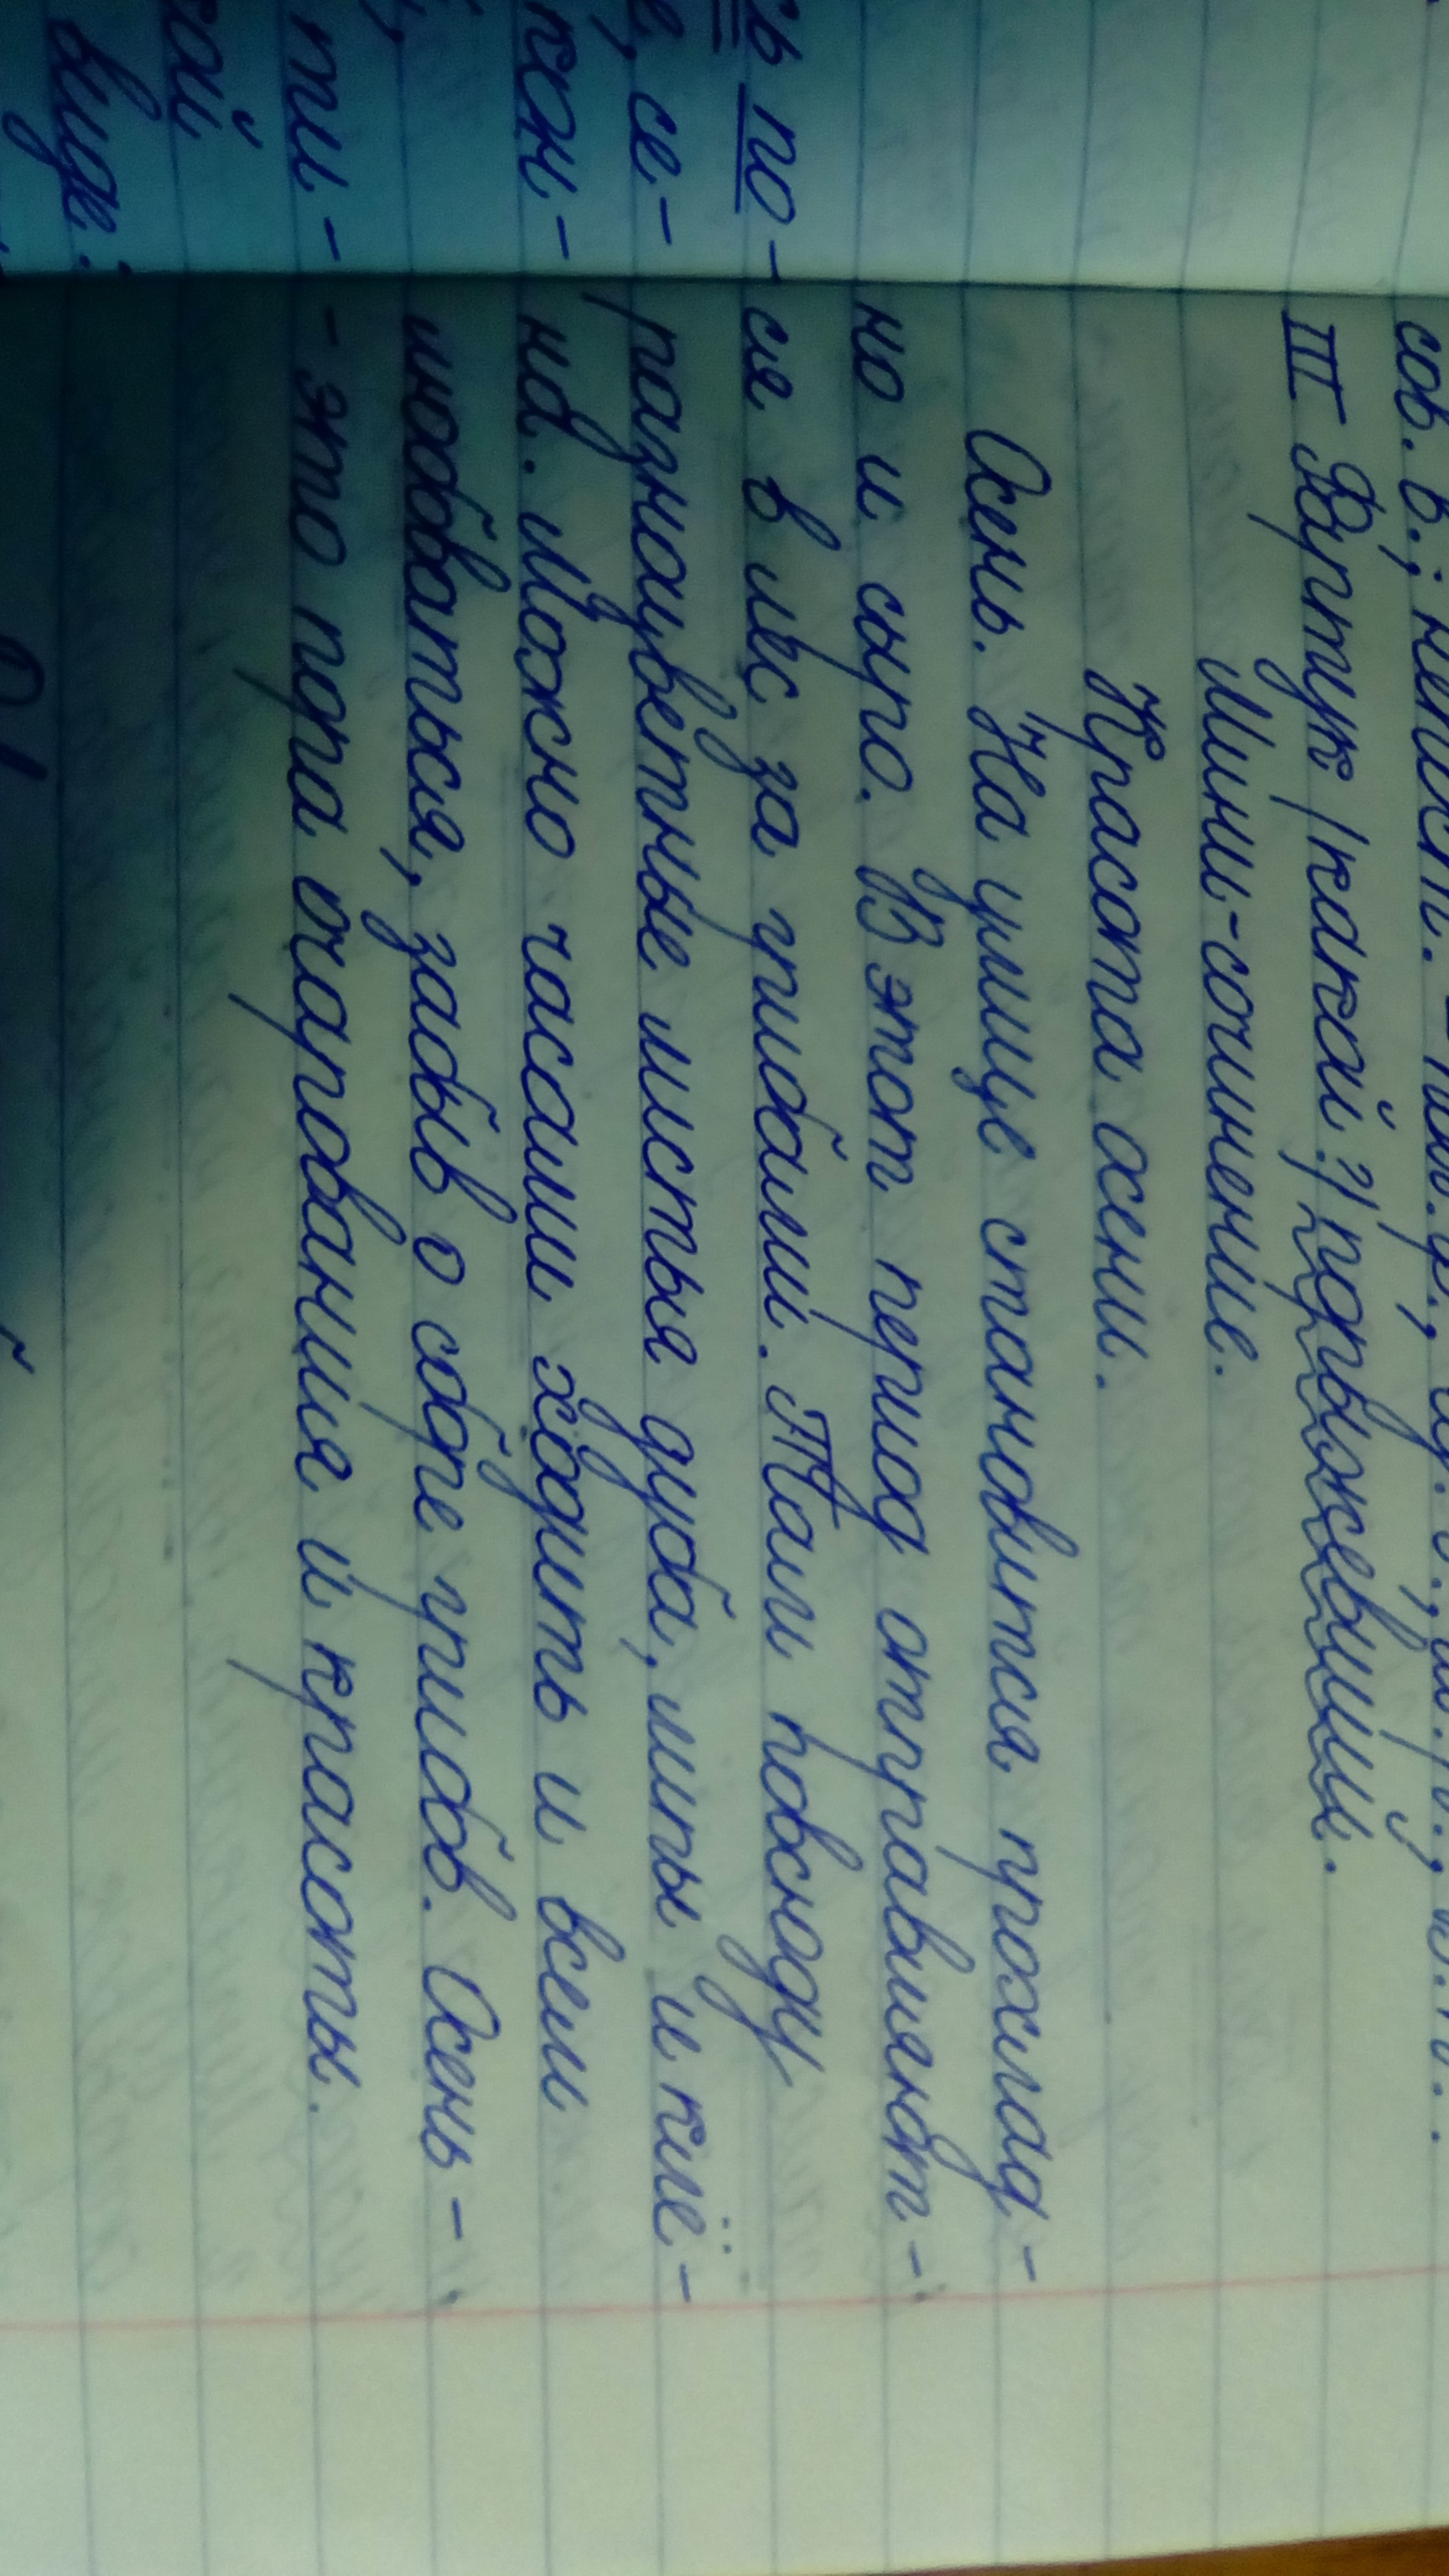 сов. в.; непост. -
III Фартук (какой?) порыжевший.
Мини-сочинение.
Красота осени.
Осень. На улице становится прохлад-
но и сыро. В этот период отправляют-
ся в лес за грибами. Там повсюду
разноцветные листья дуба, липы и клё-
на. Можно часами ходить и всем
любоваться, забыв о сборе грибов. Осень -
- это пора очарования и красоты.
сь по-
е, се-
кон-
ти-
кой
виде: